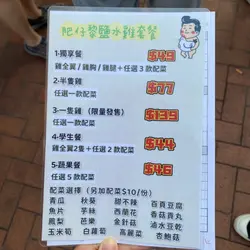 肥仔黎鹽水雞套餐
1-獨享餐 $49
雞全翼/雞胸/雞腿+任選3款配菜
2-半隻雞 $77
任選一款配菜
3-一隻雞(限量發售) $139
任選一款配菜
4-學生餐 $44
雞全翼2隻+任選2款配菜
5-蔬果餐 $46
任選5款配菜
配菜選擇(另加配菜$10/份)
青瓜 秋葵 甜不辣 百頁豆腐
魚片 芋絲 西蘭花 香菇貢丸
鳳梨 芭樂 金針菇 滷水豆乾
玉米筍 白蘿蔔 高麗菜 杏鮑菇